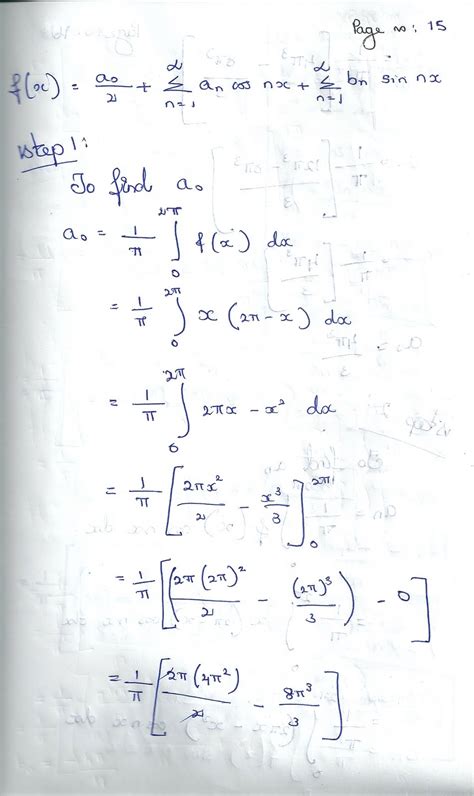 Page no: 15
f(x) = a₀/2 + ∞Σn=1 aₙ cos nx + ∞Σn=1 bₙ sin nx
step 1:
To find a₀
a₀ = 1/π ∫₀^2π f(x) dx
= 1/π ∫₀^2π x (2π - x) dx
= 1/π ∫₀^2π 2πx - x² dx
= 1/π [2πx²/2 - x³/3]₀^2π
= 1/π [(2π(2π)²/2 - (2π)³/3) - 0]
= 1/π [2π(4π²)/2 - 8π³/3]